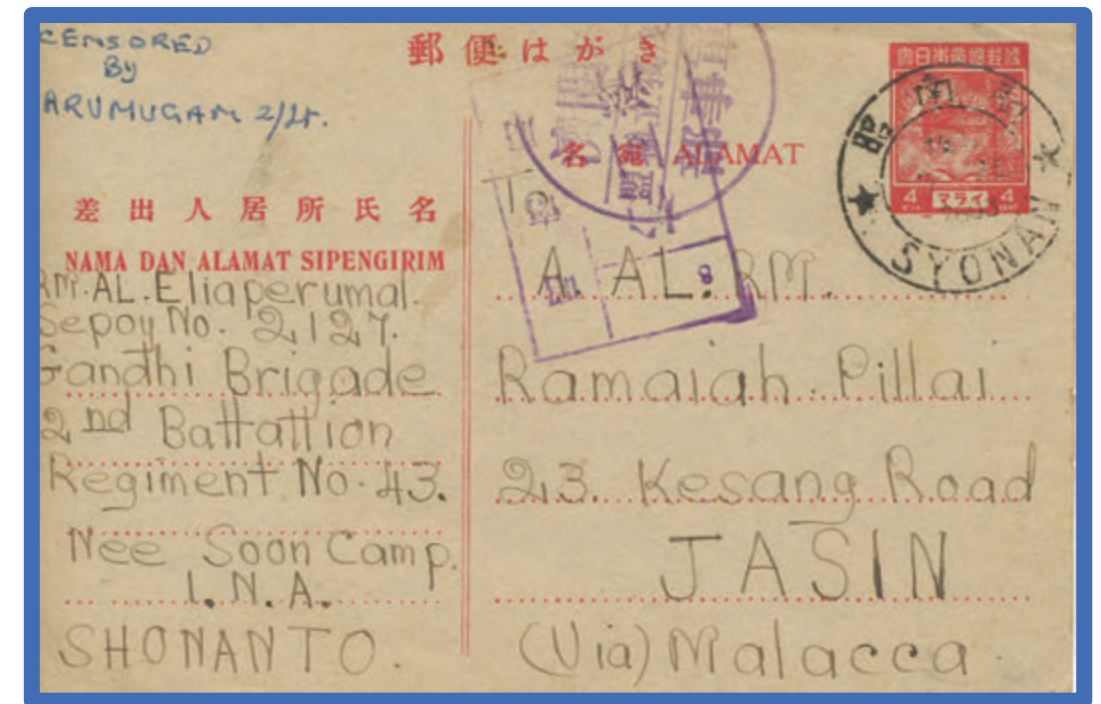 CENSORED
By
ARUMUGAM 2/Lt.
郵便はがき
名宛 ALAMAT
差出人居所氏名
NAMA DAN ALAMAT SIPENGIRIM
RM.AL.Eliaperumal.
Sepoy No. 2127.
Gandhi Brigade
2nd Battattion
Regiment No. 43.
Nee Soon Camp.
I.N.A.
SHONANTO.
4 マライ 4
昭南
SYONAN
To
A. AL. RM.
Ramaiah Pillai
23. Kesang Road
JASIN
(Via) Malacca.